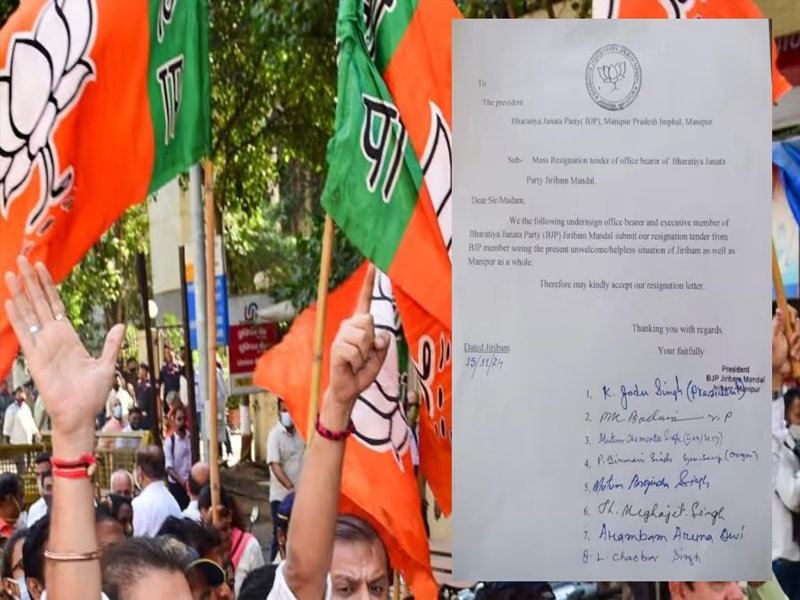 To
The president
Bharatiya Janata Party( BJP), Manipur Pradesh Imphal, Manipur
Sub- Mass Resignation tender of office bearer of Bharatiya Janata
Party Jiribam Mandal.
Dear Sir/Madam,
We the following undersign office bearer and executive member of
Bharatiya Janata Party (BJP) Jiribam Mandal submit our resignation tender from
BJP member seeing the present unwelcome/helpless situation of Jiribam as well as
Manipur as a whole.
Therefore may kindly accept our resignation letter.
Thanking you with regards.
Dated Jiribam
15/11/24
Your faithfully
President
BJP Jiribam Mandal
Jiribam, Manipur
1, K. Jadu Singh (President)
2, V.P
3, Mutum Singh
4, P. Birmani Singh
5, Mutum Singh
6, Th. Meghajit Singh
7, Arambam Aruna Devi
8. L. Chaoba Singh